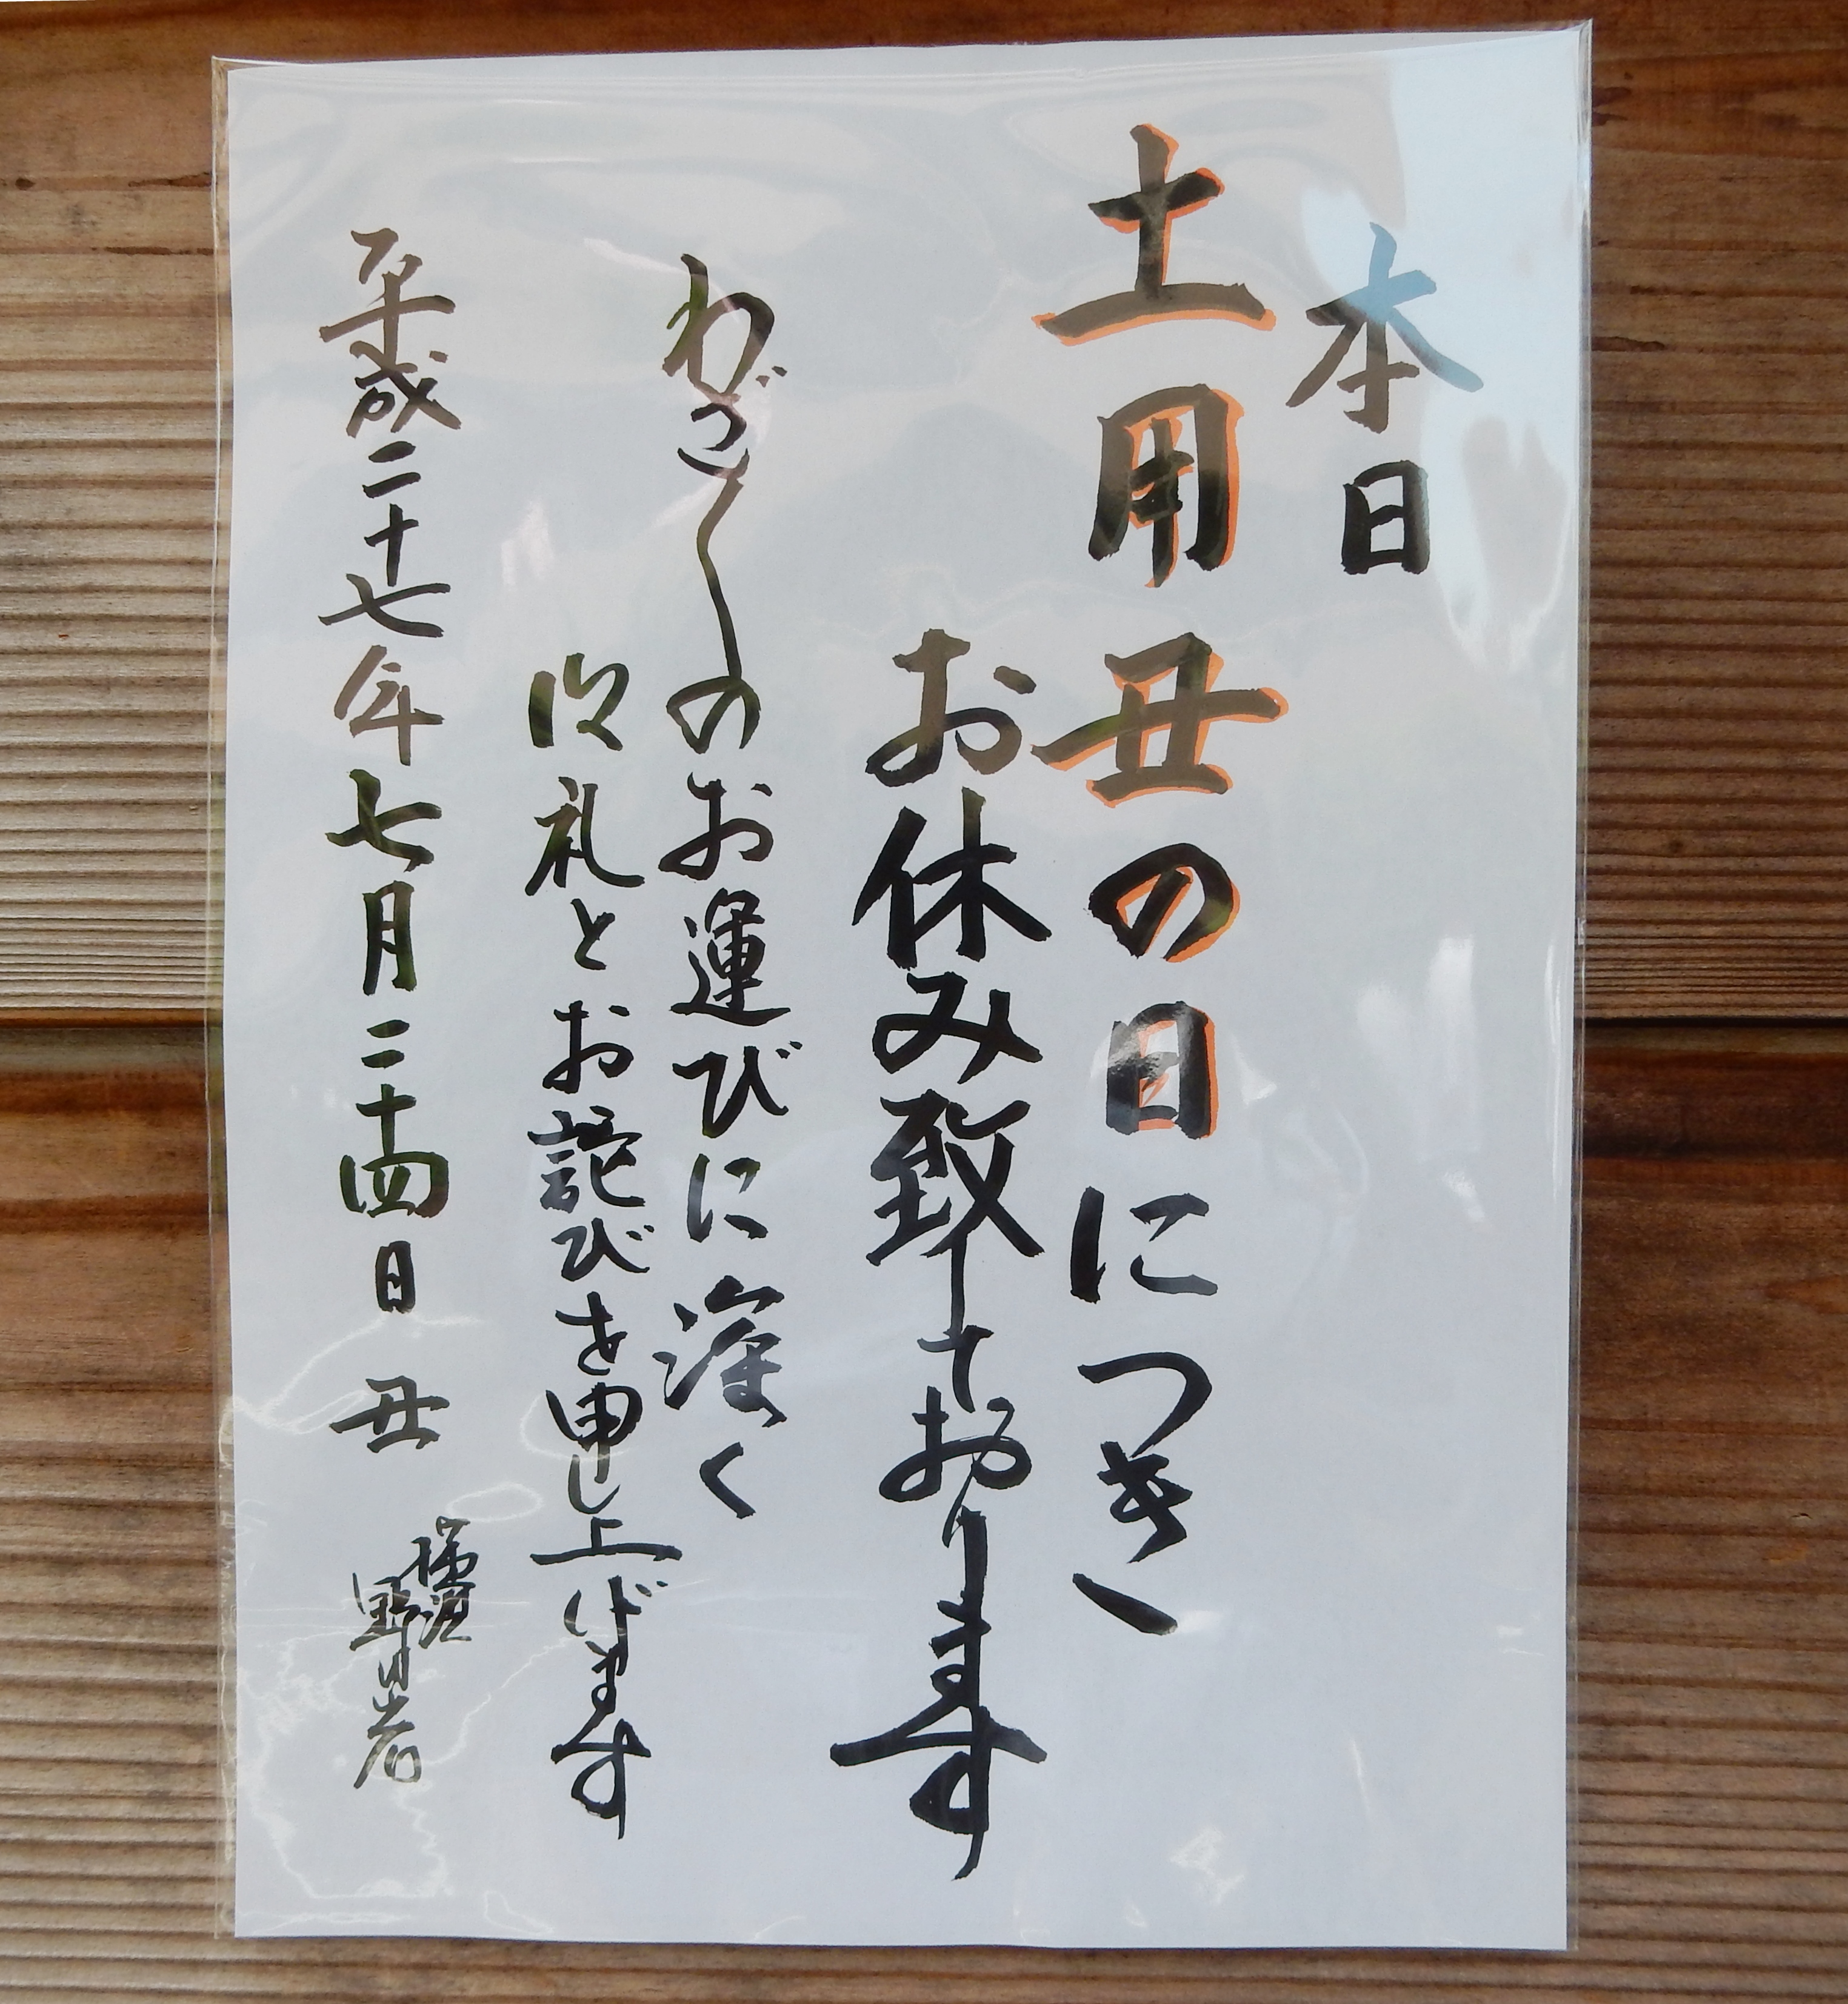 本日
土用丑の日につき、
お休み致しております
わざ〱のお運びに深く
御礼とお詫びを申し上げます
平成二十七年七月二十四日 丑
野田岩